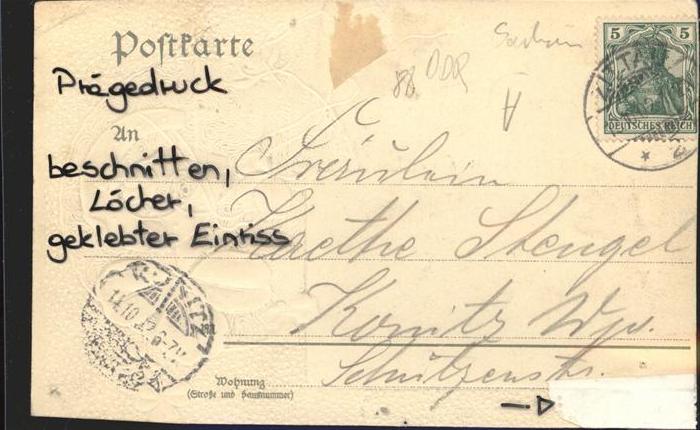 Postkarte
Prägedruck
An
beschnitten,
Löcher,
geklebter Einriss
Fräulein
Kaethe Stengel
Konitz Wpr.
Schützenstr.
Wohnung
(Straße und Hausnummer)
DDR
5 5
DEUTSCHES REICH